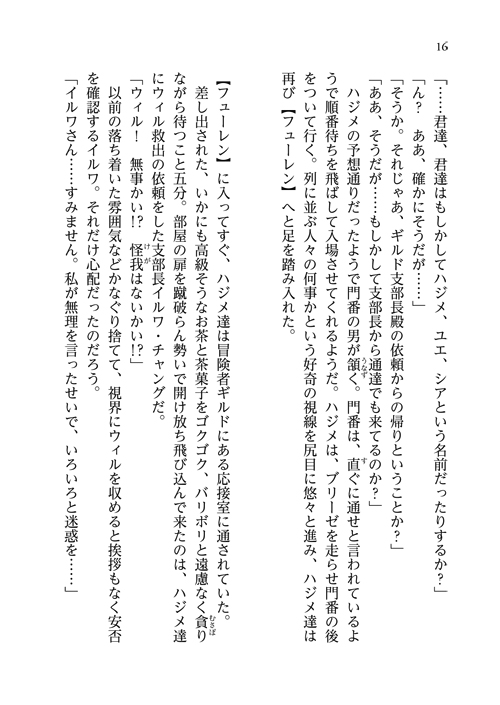 16
「……君達、君達はもしかしてハジメ、ユエ、シアという名前だったりするか？」
「ん？　ああ、確かにそうだが……」
「そうか。それじゃあ、ギルド支部長殿の依頼からの帰りということか？」
「ああ、そうだが……もしかして支部長から通達でも来てるのか？」
　ハジメの予想通りだったようで門番の男が頷く。門番は、直ぐに通せと言われているよ
うで順番待ちを飛ばして入場させてくれるようだ。ハジメは、ブリーゼを走らせ門番の後
をついて行く。列に並ぶ人々の何事かという好奇の視線を尻目に悠々と進み、ハジメ達は
再び【フューレン】へと足を踏み入れた。
【フューレン】に入ってすぐ、ハジメ達は冒険者ギルドにある応接室に通されていた。
　差し出された、いかにも高級そうなお茶と茶菓子をゴクゴク、バリボリと遠慮なく貪り
ながら待つこと五分。部屋の扉を蹴破らん勢いで開け放ち飛び込んで来たのは、ハジメ達
にウィル救出の依頼をした支部長イルワ・チャングだ。
「ウィル！　無事かい!?　怪我はないかい!?」
　以前の落ち着いた雰囲気などかなぐり捨てて、視界にウィルを収めると挨拶もなく安否
を確認するイルワ。それだけ心配だったのだろう。
「イルワさん……すみません。私が無理を言ったせいで、いろいろと迷惑を……」